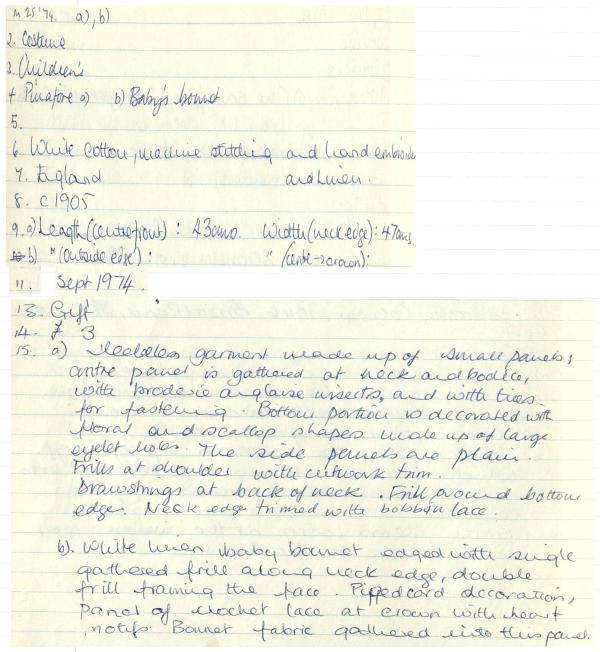 M 25 '74. a), b)
2. Costume
3. Children's
4 Pinafore a) b) Baby's bonnet
5.
6. White cotton, machine stitching and hand embroide
7. England and linen.
8. c 1905
9. a) Length (centre front) : 43cms. Width (neck edge) : 47cms.
b) " (outside edge) : " (centre → crown):
11. Sept 1974.
13. Gift
14. £ 3
15. a) Sleeveless garment made up of small panels;
centre panel is gathered at neck and bodice,
with broderie anglaise inserts, and with ties
for fastening. Bottom portion is decorated with
floral and scallop shapes made up of large
eyelet holes. The side panels are plain.
Frills at shoulder with cutwork trim.
Drawstrings at back of neck. Frill around bottom
edge. Neck edge trimmed with bobbin lace.
b). White linen baby bonnet edged with single
gathered frill along neck edge, double
frill framing the face. Piped cord decoration,
panel of crochet lace at crown with heart
motifs. Bonnet fabric gathered into this panel.